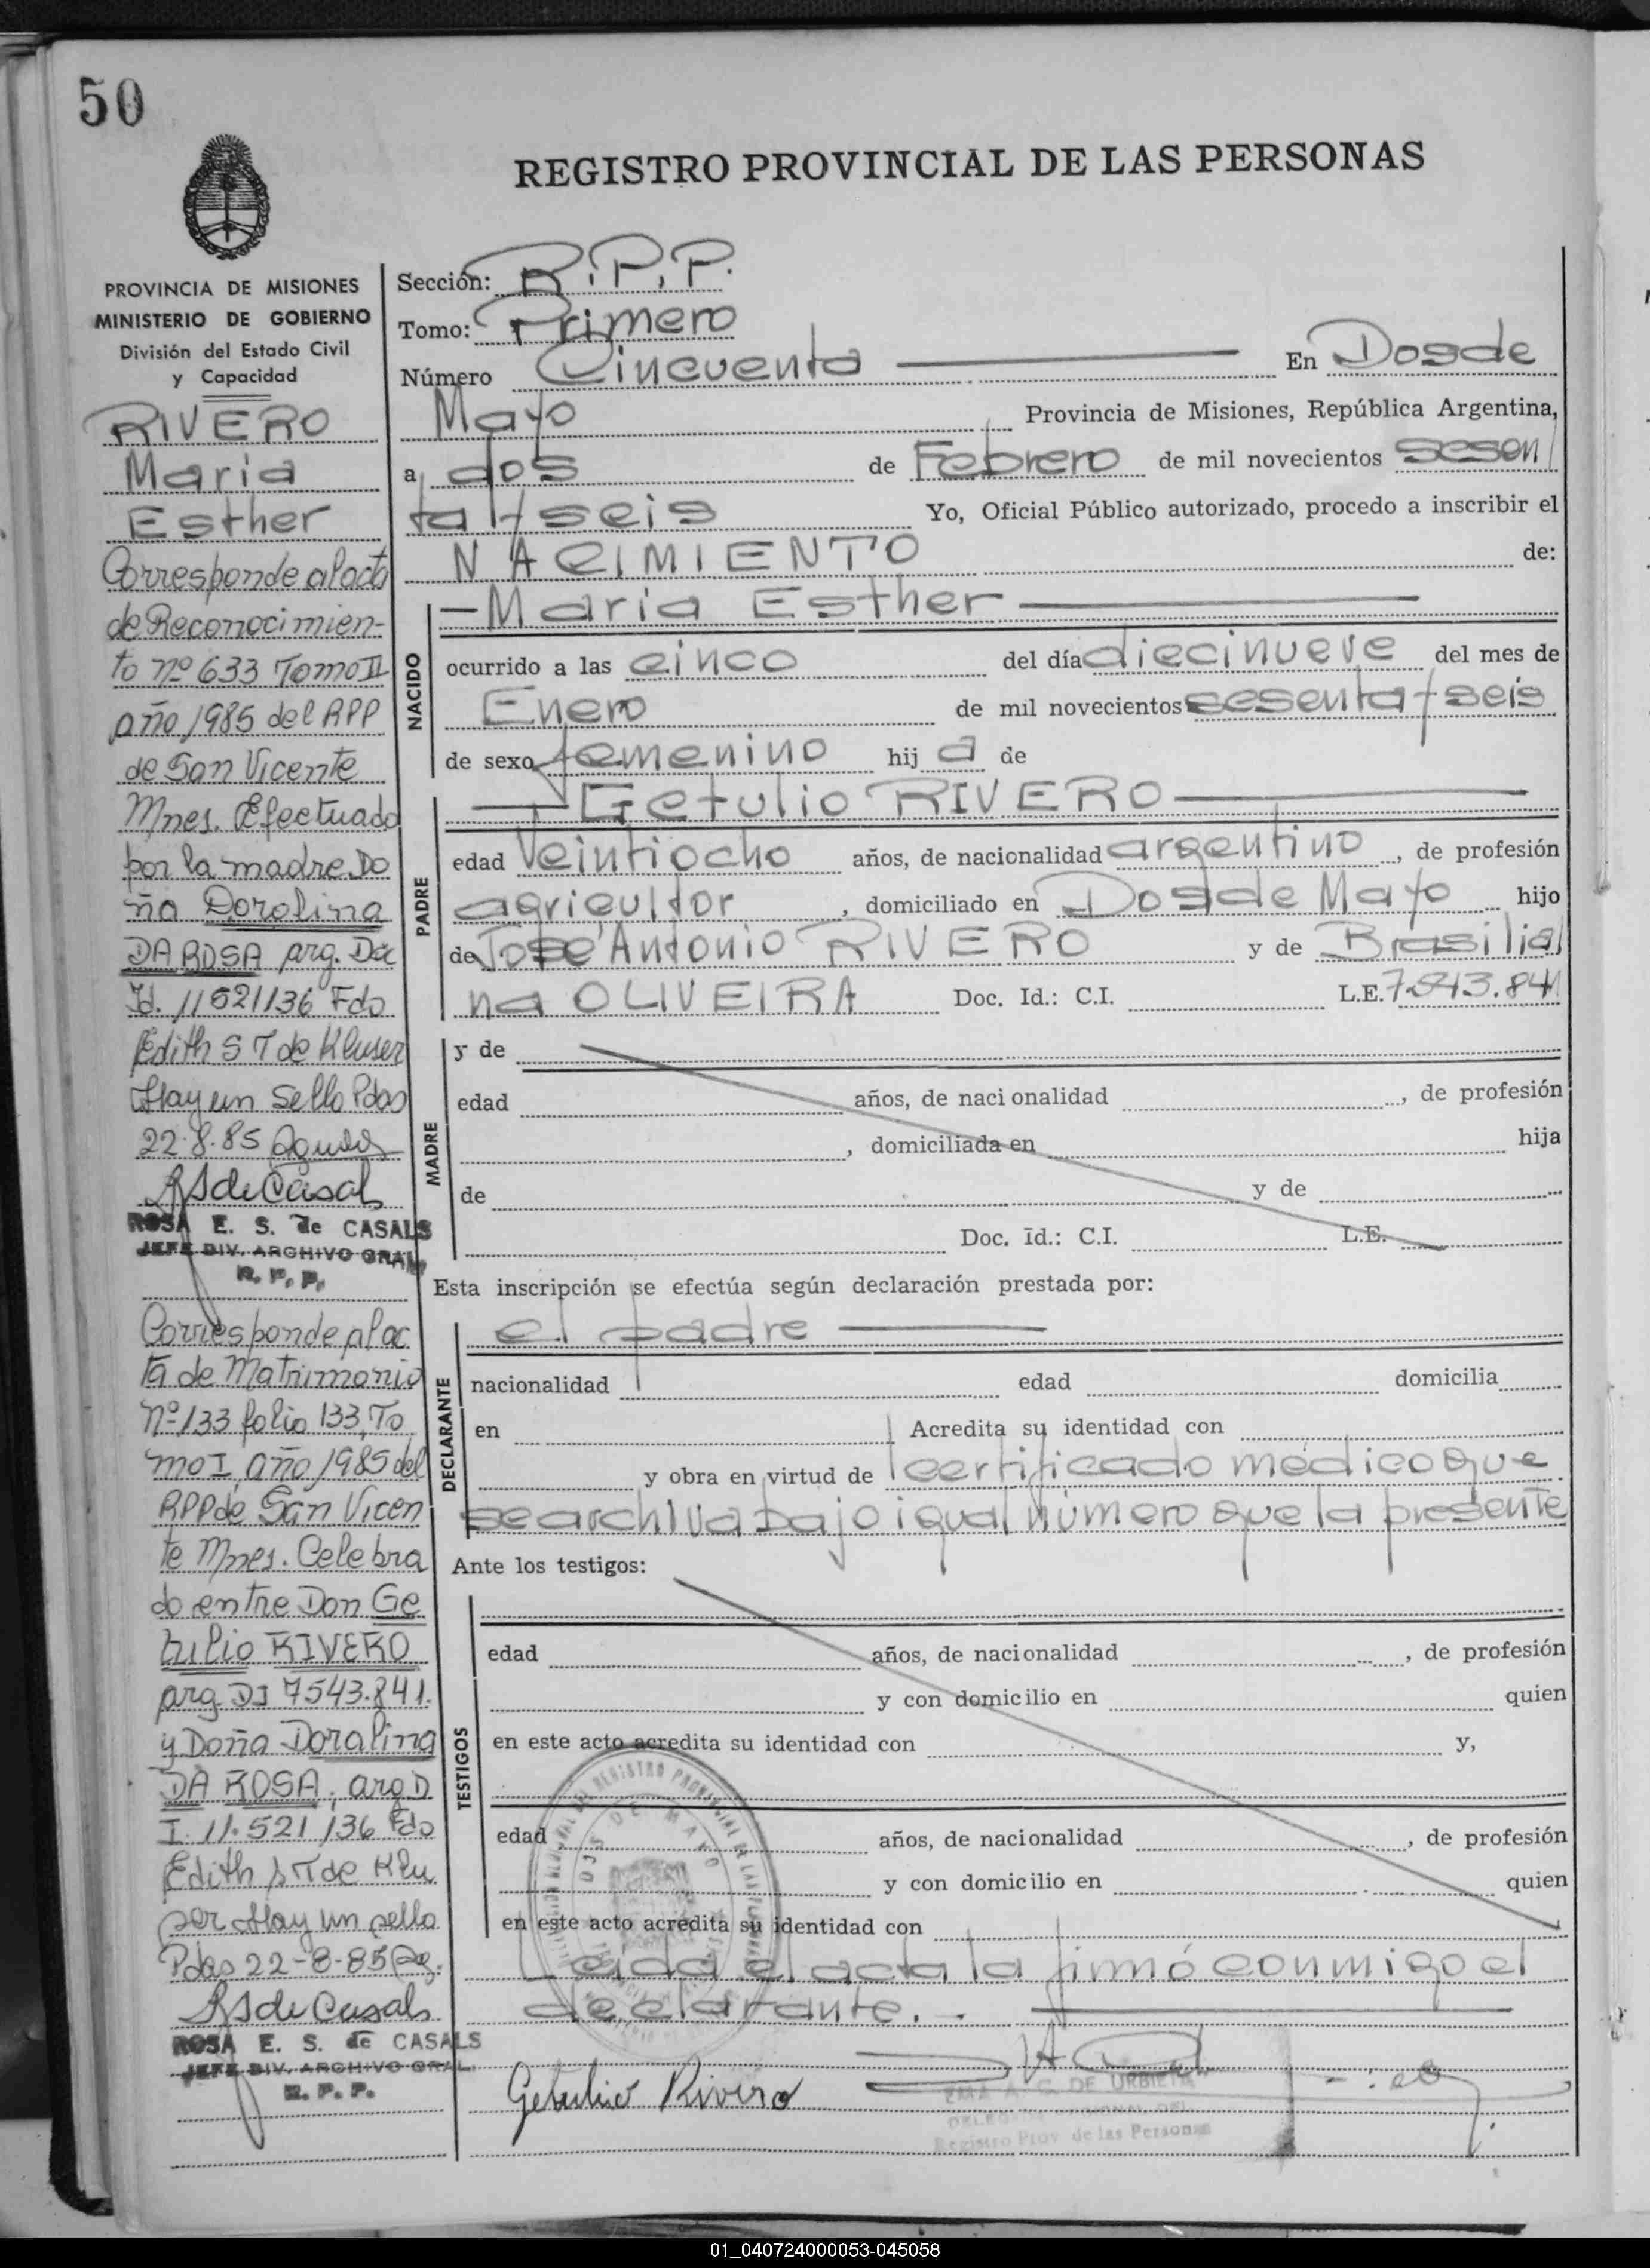 50
REGISTRO PROVINCIAL DE LAS PERSONAS
PROVINCIA DE MISIONES
MINISTERIO DE GOBIERNO
División del Estado Civil
y Capacidad
RIVERO
Maria
Esther
Corresponde al acta
de Reconocimien-
to nº 633 Tomo II
año 1985 del RPP
de San Vicente
Mnes. Efectuado
por la madre Do
ña Dorolina
DA ROSA arg. Doc
Id. 11521136 Fdo
Edith S T de Kluser
Hay un Sello Pdas
22.8.85
RSdeCasals
ROSA E. S. de CASALS
JEFE DIV. ARCHIVO GRAL.
R. P. P.
Corresponde al ac
ta de Matrimonio
nº 133 folio 133, To
mo I, año 1985 del
RPP de San Vicen
te Mnes. Celebra
do entre Don Ge
tulio RIVERO
arg DI 7543.841.
y Doña Doralina
DA ROSA, arg D
I. 11.521136 Fdo
Edith S T de Klu
ser Hay un sello
Pdas 22-8-85
RSde Casals
ROSA E. S. de CASALS
JEFE DIV. ARCHIVO GRAL.
R. P. P.
Sección: R.P.P.
Tomo: Primero
Número Cincuenta En Dosde
Mayo Provincia de Misiones, República Argentina,
a dos de Febrero de mil novecientos sesen
ta y seis Yo, Oficial Público autorizado, procedo a inscribir el
NACIMIENTO de:
NACIDO
—Maria Esther
ocurrido a las cinco del día diecinueve del mes de
Enero de mil novecientos sesenta y seis
de sexo femenino hij a de
PADRE
Getulio RIVERO
edad Veintiocho años, de nacionalidad argentino, de profesión
agricultor, domiciliado en Dosde Mayo hijo
de José Antonio RIVERO y de Brasilia
na OLIVEIRA Doc. Id.: C.I. L.E. 7.543.841
MADRE
y de
edad años, de nacionalidad, de profesión
, domiciliada en hija
de y de
Doc. Id.: C.I. L.E.
Esta inscripción se efectúa según declaración prestada por:
DECLARANTE
el padre
nacionalidad edad domicilia
en Acredita su identidad con
y obra en virtud de certificado médico que
se archiva bajo igual número que la presente
Ante los testigos:
TESTIGOS
edad años, de nacionalidad, de profesión
y con domicilio en quien
en este acto acredita su identidad con y,
edad años, de nacionalidad, de profesión
y con domicilio en quien
en este acto acredita su identidad con
Leida el acta la firmó conmigo el
declarante.
Getulio Rivero
EMA A. C. DE URBIETA
Registro Prov. de las Personas
01_040724000053-045058